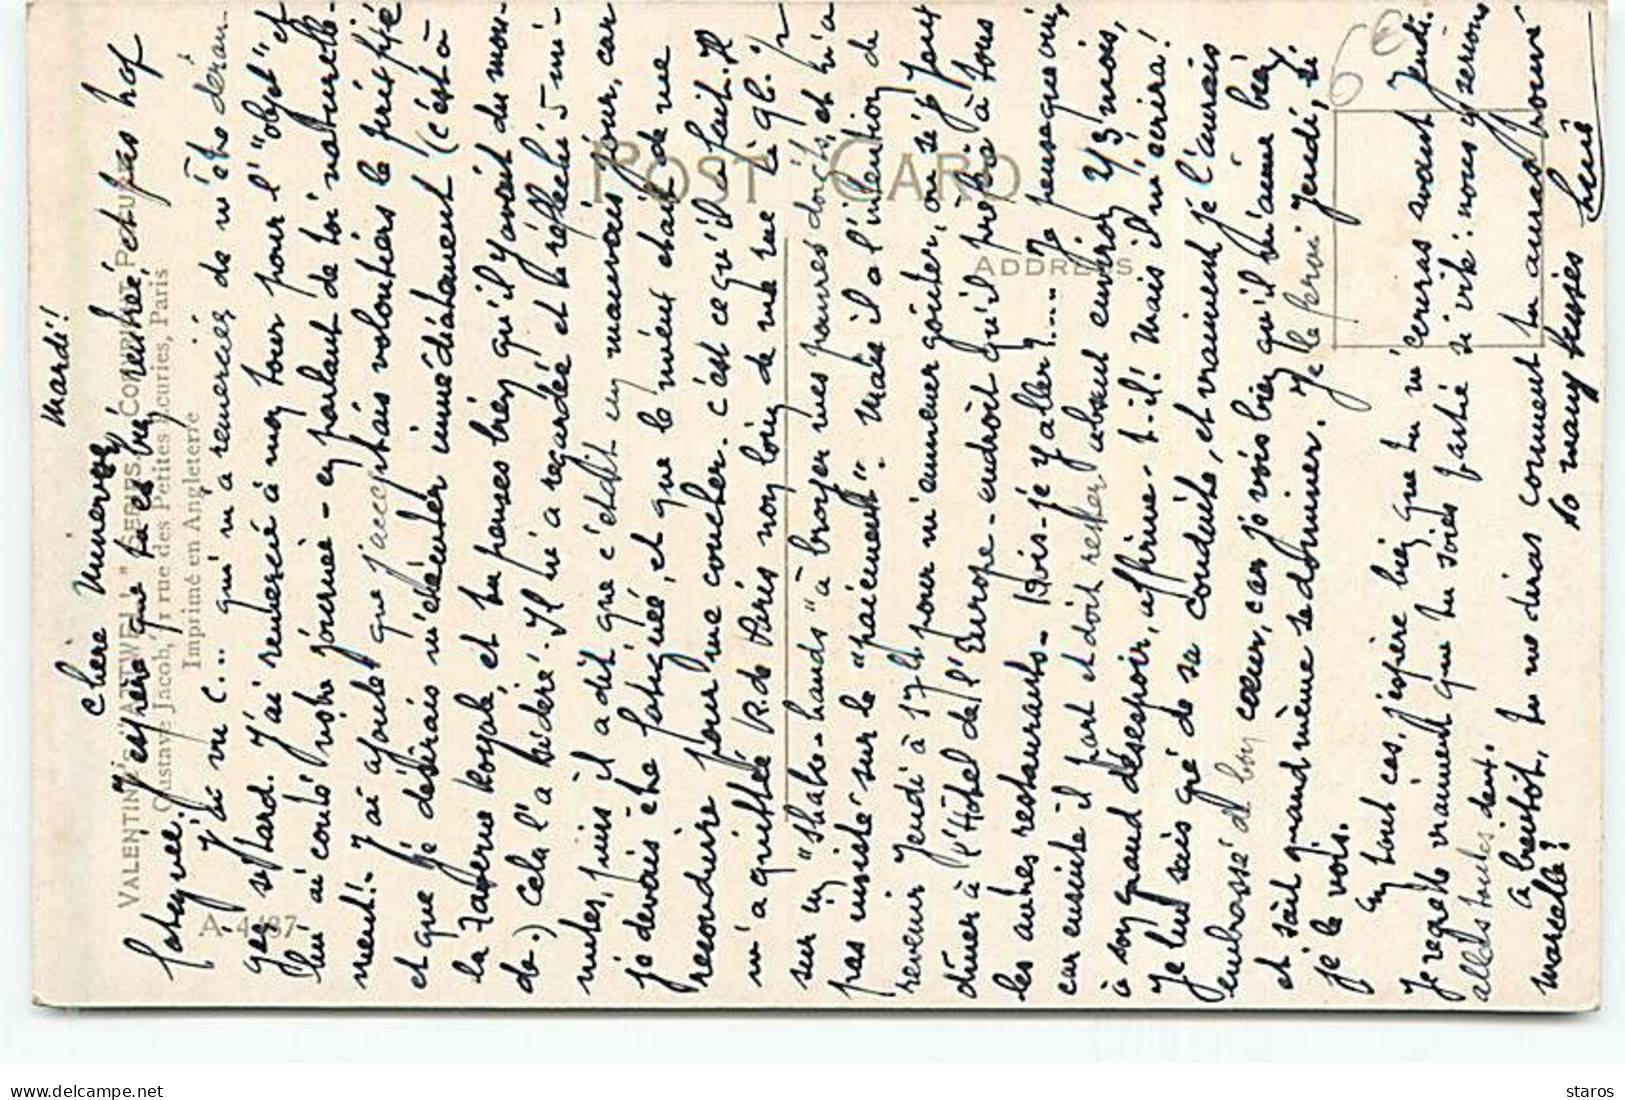 Mardi!
Chère Minerve
J'espère que tu es bien rentrée et pas trop
fatiguée.
J'ai vu C... qui m'a remerciée de m'être déran-
gée si tard. J'ai remercié à mon tour pour l'"objet" et
lui ai conté notre journée - en parlant de toi naturelle-
ment! - J'ai ajouté que j'acceptais volontiers le prix fixé
et que je désirais m'exécuter immédiatement (c'est à
la Taverne Royale, et tu penses bien qu'il y avait du mon-
de.) Cela l'a sidéré. Il m'a regardée et a réfléchi 5 mi-
nutes, puis il a dit que c'était un mauvais jour, car
je devais être fatiguée, et que le mieux était de me
reconduire pour me coucher. C'est ce qu'il a fait. Il
m'a quittée R. de Paris non loin de ma rue là
sur un "shake-hands" à broyer mes pauvres doigts, et n'a
pas insisté sur le "paiement". Mais il a l'intention de
revenir Jeudi à 17h pour m'emmener goûter, ou si je peux
dîner à l'Hôtel de l'Europe - endroit qu'il préfère à tous
les autres restaurants - Dois-je y aller?... Je pense que oui,
car ensuite il part et doit rester absent environ 2/3 mois,
à son grand désespoir, affirme-t-il! Mais il m'écrira!
Je lui sais gré de sa conduite, et vraiment je l'aurais
embrassé de bon cœur, car je vois bien qu'il m'aime bien
et sait quand même se dominer. Je le ferai Jeudi, si
je le vois.
En tout cas, j'espère bien que tu m'écriras avant Jeudi.
Je regrette vraiment que tu sois partie si vite: nous y serions
allées toutes deux.
A bientôt, tu me diras comment tu auras trouvé
Marcelle?
So many kisses
VALENTINE'S "ARTWELL" SERIES, COURBEVOIE
Gustave Jacob, rue des Petites Ecuries, Paris
Imprimé en Angleterre
A 4487
POST CARD
ADDRESS
6€
staros